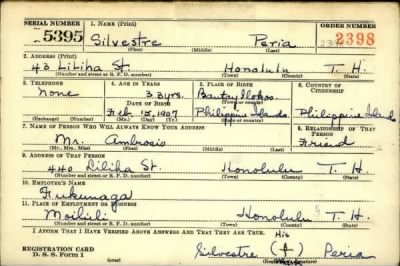 SERIAL NUMBER 1. NAME (Print) ORDER NUMBER
5395 Silvestre Peria 2398
(First) (Middle) (Last)
2. ADDRESS (Print)
43 Liliha St. Honolulu T. H.
(Number and street or R. F. D. number) (Town) (County) (State)
3. TELEPHONE 4. AGE IN YEARS 5. PLACE OF BIRTH 6. COUNTRY OF CITIZENSHIP
None 33 yrs. Bantay Ilokos
DATE OF BIRTH (Town) (County)
Feb. 15, 1907 Philippine Islands. Philippine Islands
(Exchange) (Number) (Mo.) (Day) (Yr.) (State or country)
7. NAME OF PERSON WHO WILL ALWAYS KNOW YOUR ADDRESS 8. RELATIONSHIP OF THAT PERSON
Mr. Ambrosio Friend
(Mr., Mrs., Miss) (First) (Middle) (Last)
9. ADDRESS OF THAT PERSON
440 Liliha St. Honolulu T. H.
(Number and street or R. F. D. number) (Town) (County) (State)
10. EMPLOYER'S NAME
Fukunaga
11. PLACE OF EMPLOYMENT OR BUSINESS
Moiliili Honolulu T. H.
(Number and street or R. F. D. number) (Town) (County) (State)
I AFFIRM THAT I HAVE VERIFIED ABOVE ANSWERS AND THAT THEY ARE TRUE.
His
REGISTRATION CARD Silvestre (+) Peria
D. S. S. Form 1